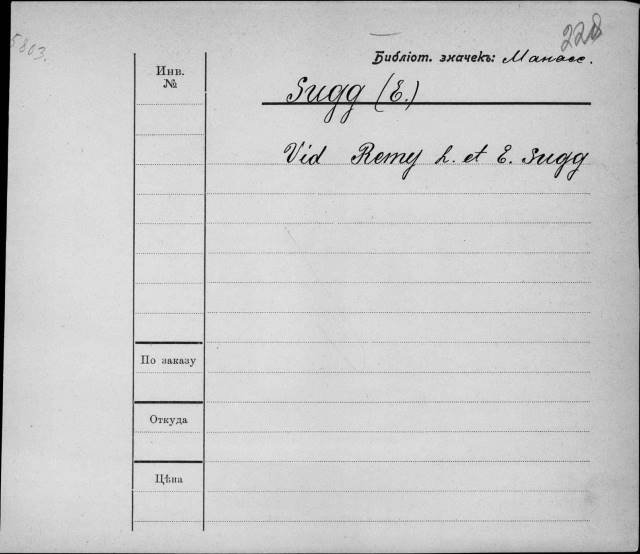 5803.
228
Библіот. значекъ: Манасс.
Инв.
№
Sugg (E.)
Vid Remy L. et E. Sugg
По заказу
Откуда
Цѣна